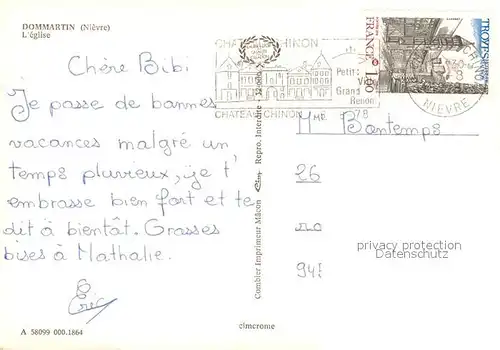 DOMMARTIN (Nièvre)
L'église
Chère Bibi
Je passe de bonnes
vacances malgré un
temps pluvieux, je t'
embrasse bien fort et te
dit à bientôt. Grosses
bises à Nathalie.
Eric
A 58099 000.1864
CHATEAU-CHINON
Petite Ville
Grand
Renom
CHATEAU-CHINON
78
NIEVRE
FRANCE 1,00
TROYES
Combier Imprimeur Mâcon Cim Repro. Interdite
cimcrome
M Bontemps
26
privacy protection
Datenschutz